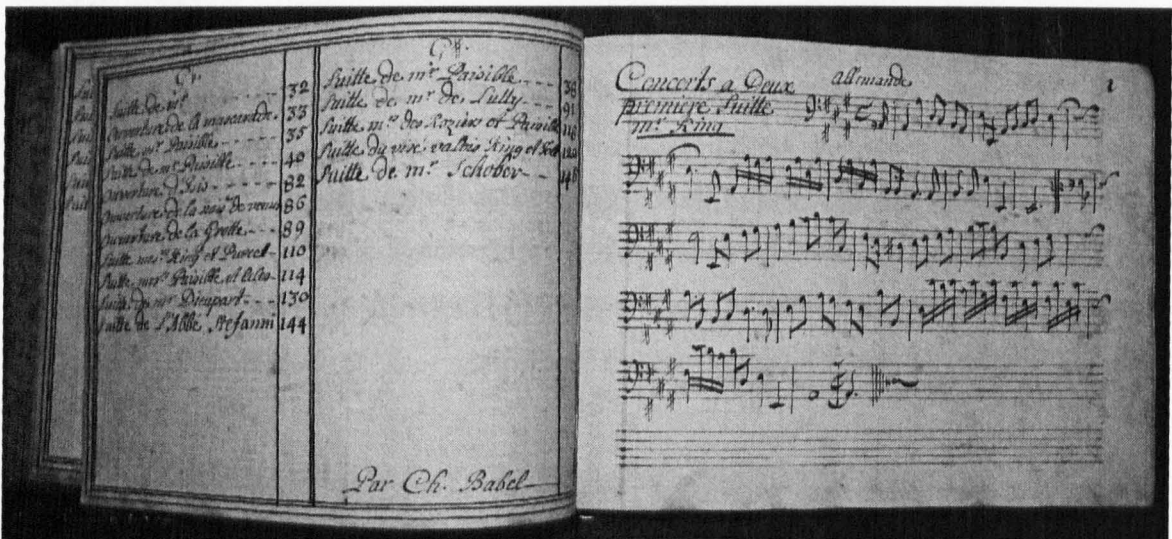 Gr.
Suitte de mr. - - - - - 32
Ouverture de la mascarade. 33
Suitte mr. Paisible - - - 35
Suitte de mr. Paisible - - - 40
Ouverture d'Isis - - - - - 82
Ouverture de la nais. de venus 86
Ouverture de la Grotte - - - 89
Suitte mrs. King et Purcel - 110
Suitte mrs. Paisible et 114
Suitte de mr. Dieupart - - - 130
Suitte de L'Abbé Stefanni 144
G♮.
Suitte de mr. Paisible - - - - 38
Suitte de mr. de Lully - - - 91
Suitte mrs. des Roziers et Paisible 118
Suitte du vice valtro King et
Suitte de mr. Schober - - -
Par Ch. Babel
Concerts a Deux Allemande 1
premiere Suitte
mr. King